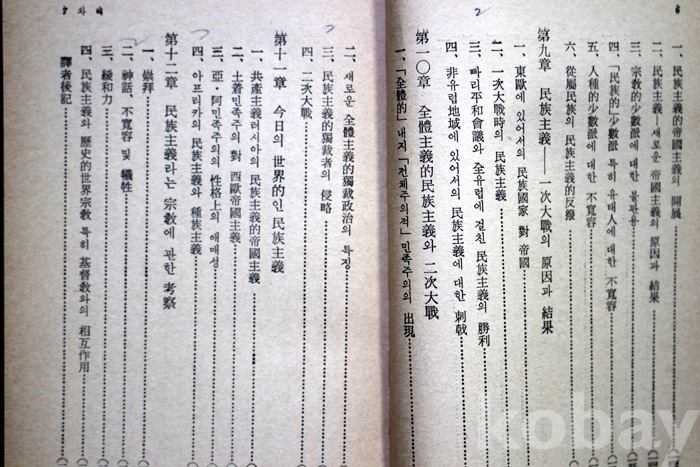 6
一、民族主義의 開展
二、民族主義—새로운 帝國主義의 原因과 結果
三、宗敎的少數派에 대한 不寬容
四、「民族的」少數派 특히 유태人에 대한 不寬容
五、人種的少數派에 대한 不寬容
六、從屬民族의 民族主義的反撥
第九章 民族主義—一次大戰의 原因과 結果
一、東歐에 있어서의 民族國家 對 帝國
二、一次大戰時의 民族主義
三、빠리平和會議와 全유럽에 걸친 民族主義의 勝利
四、非유럽地域에 있어서의 民族主義에 대한 刺戟
第一〇章 全體主義的民族主義와 二次大戰
一、「全體的」 내지 「전체주의적」 민족주의의 出現
7
二、새로운 全體主義的獨裁政治의 특징
三、民族主義的獨裁者의 侵略
四、二次大戰
第十一章 今日의 世界的인 民族主義
一、共產主義러시아의 民族主義的帝國主義
二、土着민족주의 對 西歐帝國主義
三、亞・阿민족주의의 性格上의 애매성
四、아프리카의 民族主義와 種族主義
第十二章 民族主義라는 宗敎에 관한 考察
一、崇拜
二、神話、不寬容 및 犧牲
三、緩和力
四、民族主義와 歷史的世界宗敎 특히 基督敎와의 相互作用
譯者後記
kobay